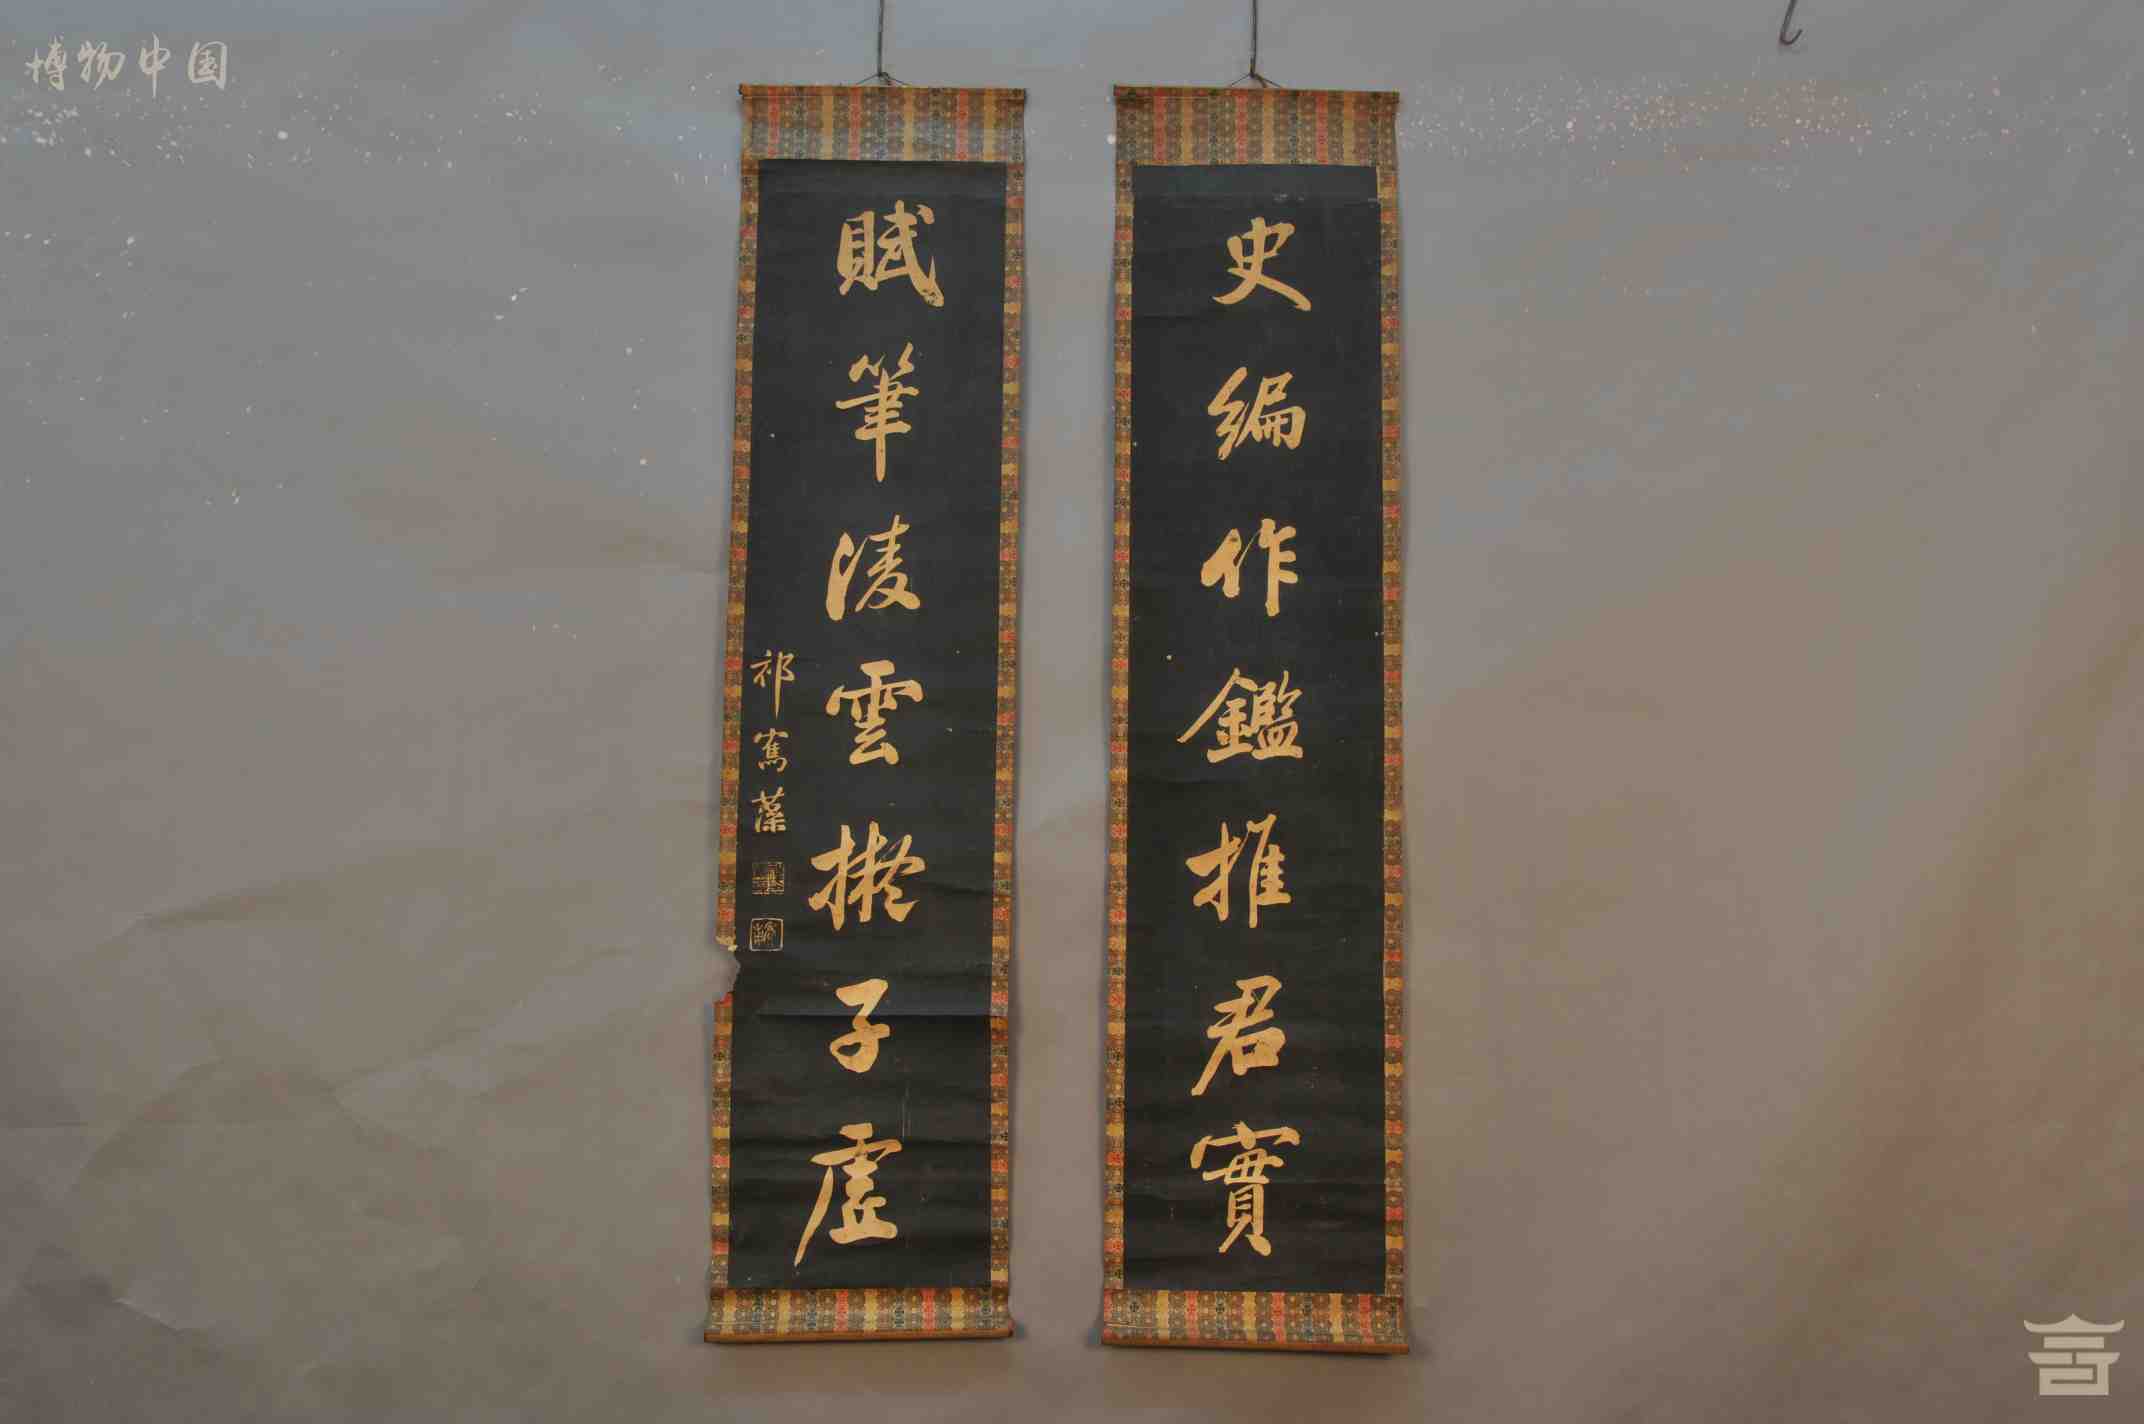 博物中国
史編作鑑推君實
賦筆淩雲擬子虛
祁寯藻